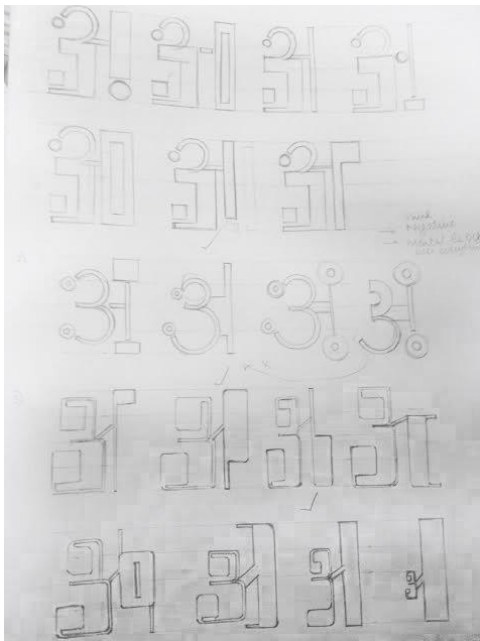 अ अ अ अ
अ अ अ
अ अ अ अ
अ अ अ अ
अ अ अ अ